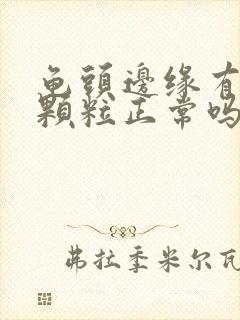 龟頭邊缘有
顆粒正常吗
弗拉季米尔瓦